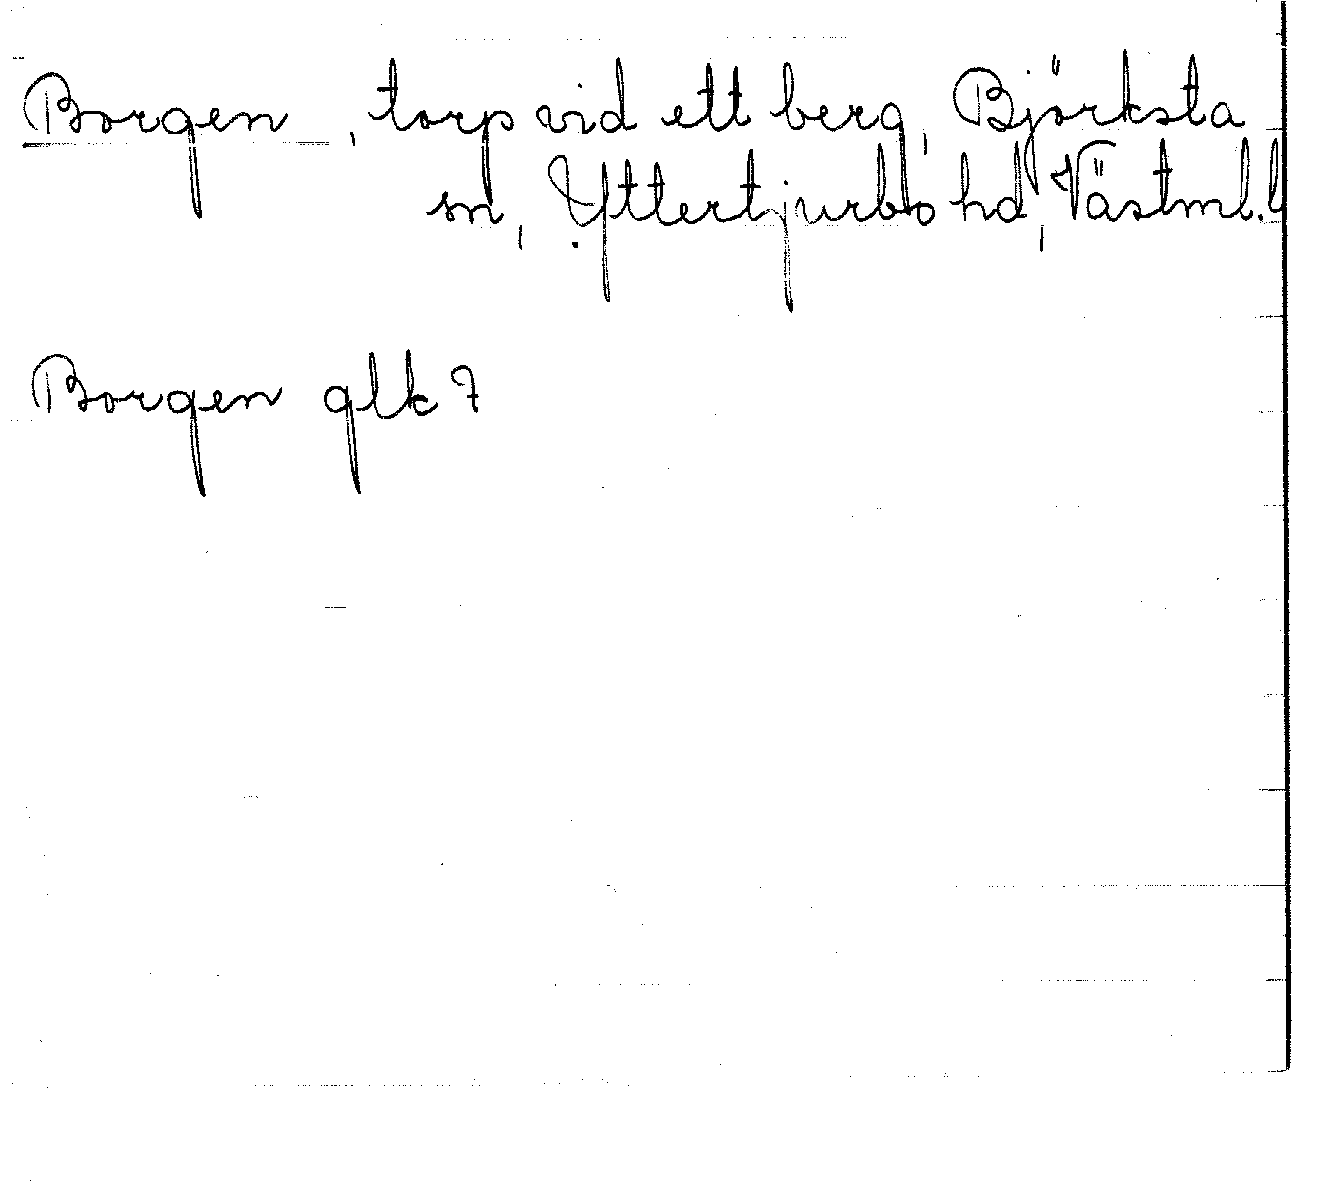 Borgen, torp vid ett berg, Björksta
sn, Yttertjurbo hd, Västml. l
Borgen glk 7